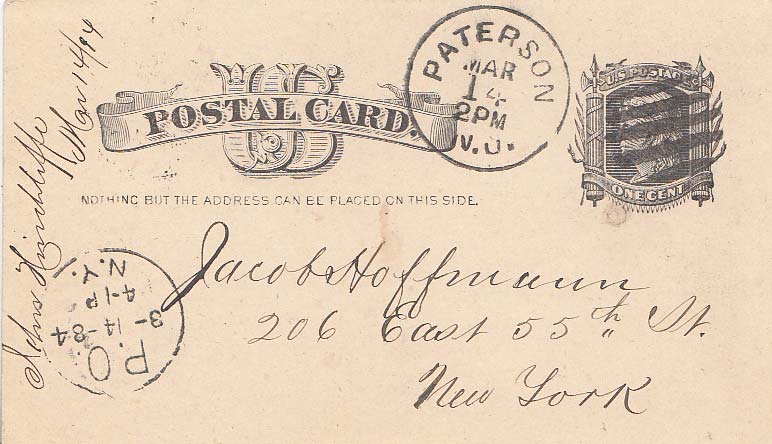 POSTAL CARD.
NOTHING BUT THE ADDRESS CAN BE PLACED ON THIS SIDE.
PATERSON
MAR
14
2PM
N.J.
U.S. POSTAGE
ONE CENT
Jacob Hoffmann
206 East 55th St.
New York
Hinchliffe
Mar 14/84
P.O.
3-14-84
4-1P
N.Y.